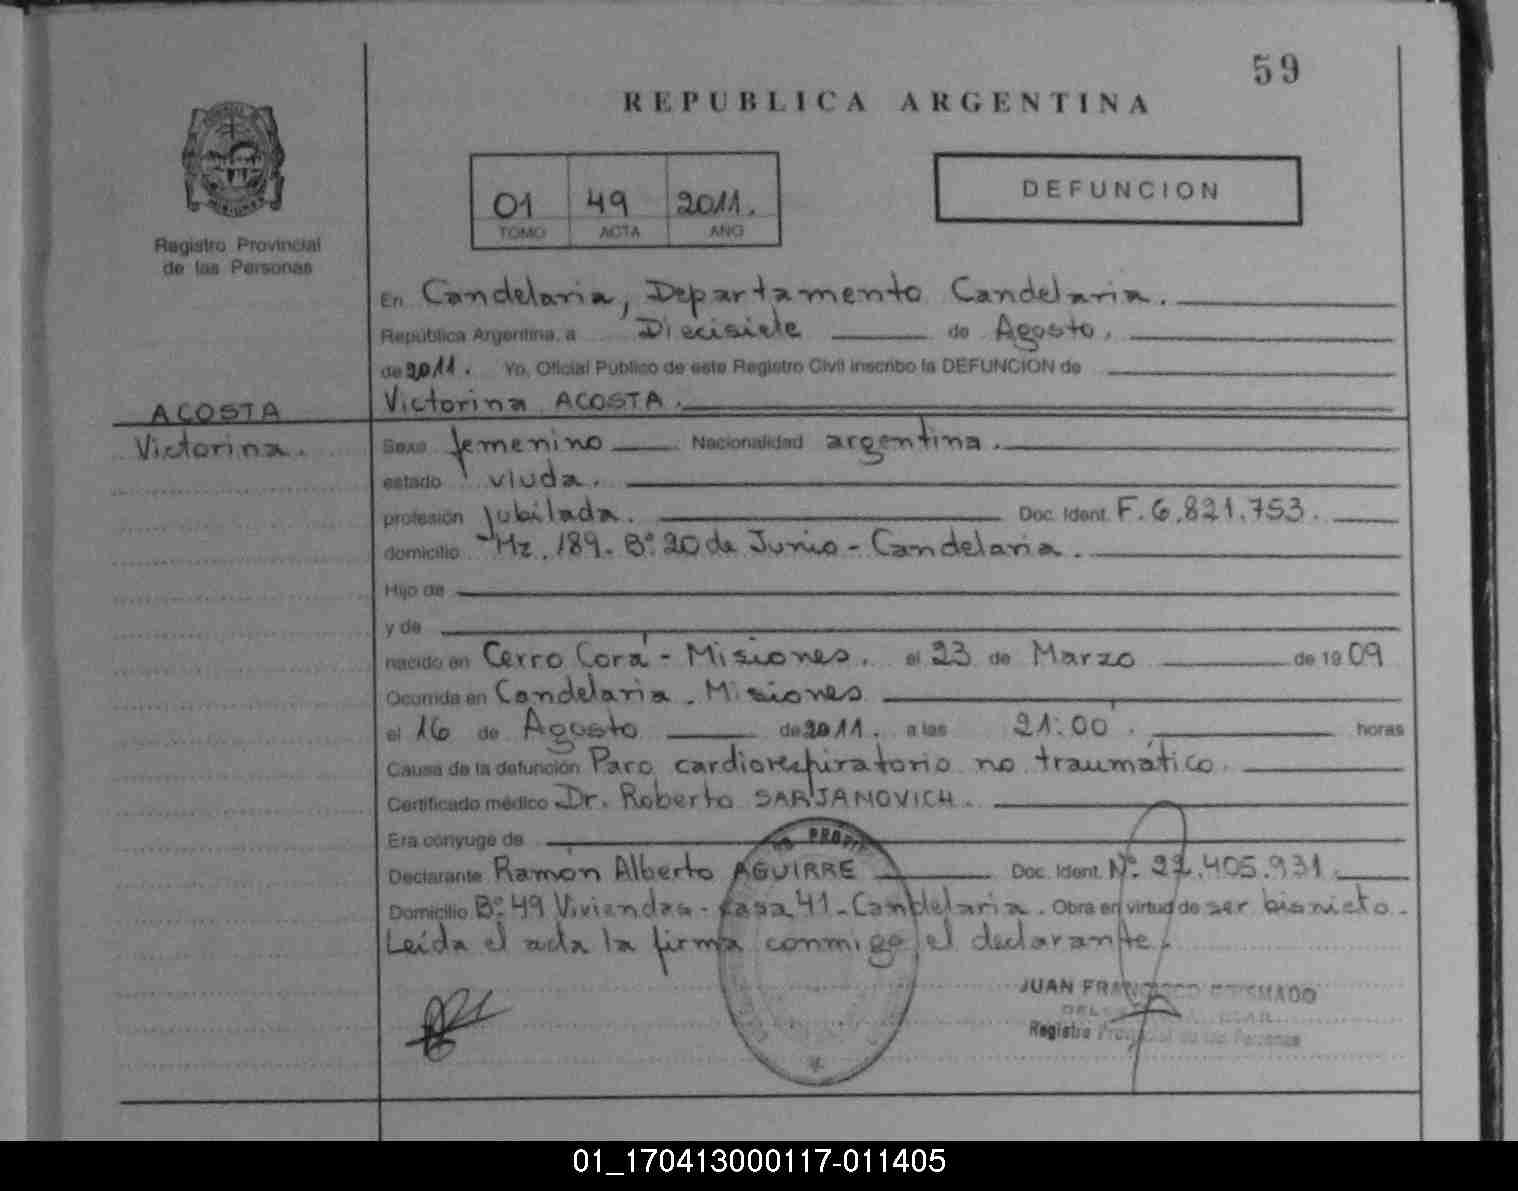 59
REPUBLICA ARGENTINA
01 49 2011.
TOMO ACTA AÑO
DEFUNCION
Registro Provincial
de las Personas
En Candelaria, Departamento Candelaria.
República Argentina, a Diecisiete de Agosto.
de 2011. Yo, Oficial Público de este Registro Civil inscribo la DEFUNCION de
ACOSTA
Victorina ACOSTA.
Victorina.
Sexo femenino Nacionalidad argentina.
estado viuda.
profesión jubilada. Doc. Ident. F.6.821.753.
domicilio Mz. 189. Bº 20 de Junio - Candelaria.
Hijo de
y de
nacido en Cerro Corá - Misiones. el 23 de Marzo de 19 09
Ocurrida en Candelaria. Misiones
el 16 de Agosto de 2011. a las 21:00'. horas
Causa de la defunción Paro cardiorespiratorio no traumático.
Certificado médico Dr. Roberto SARJANOVICH.
Era cónyuge de
Declarante Ramón Alberto AGUIRRE Doc. Ident. Nº. 22.405.931.
Domicilio Bº. 49 Viviendas - casa 41 - Candelaria. Obra en virtud de ser bisnieto.
Leída el acta la firma conmigo el declarante.
JUAN
Registro Provincial de las Personas
01_170413000117-011405